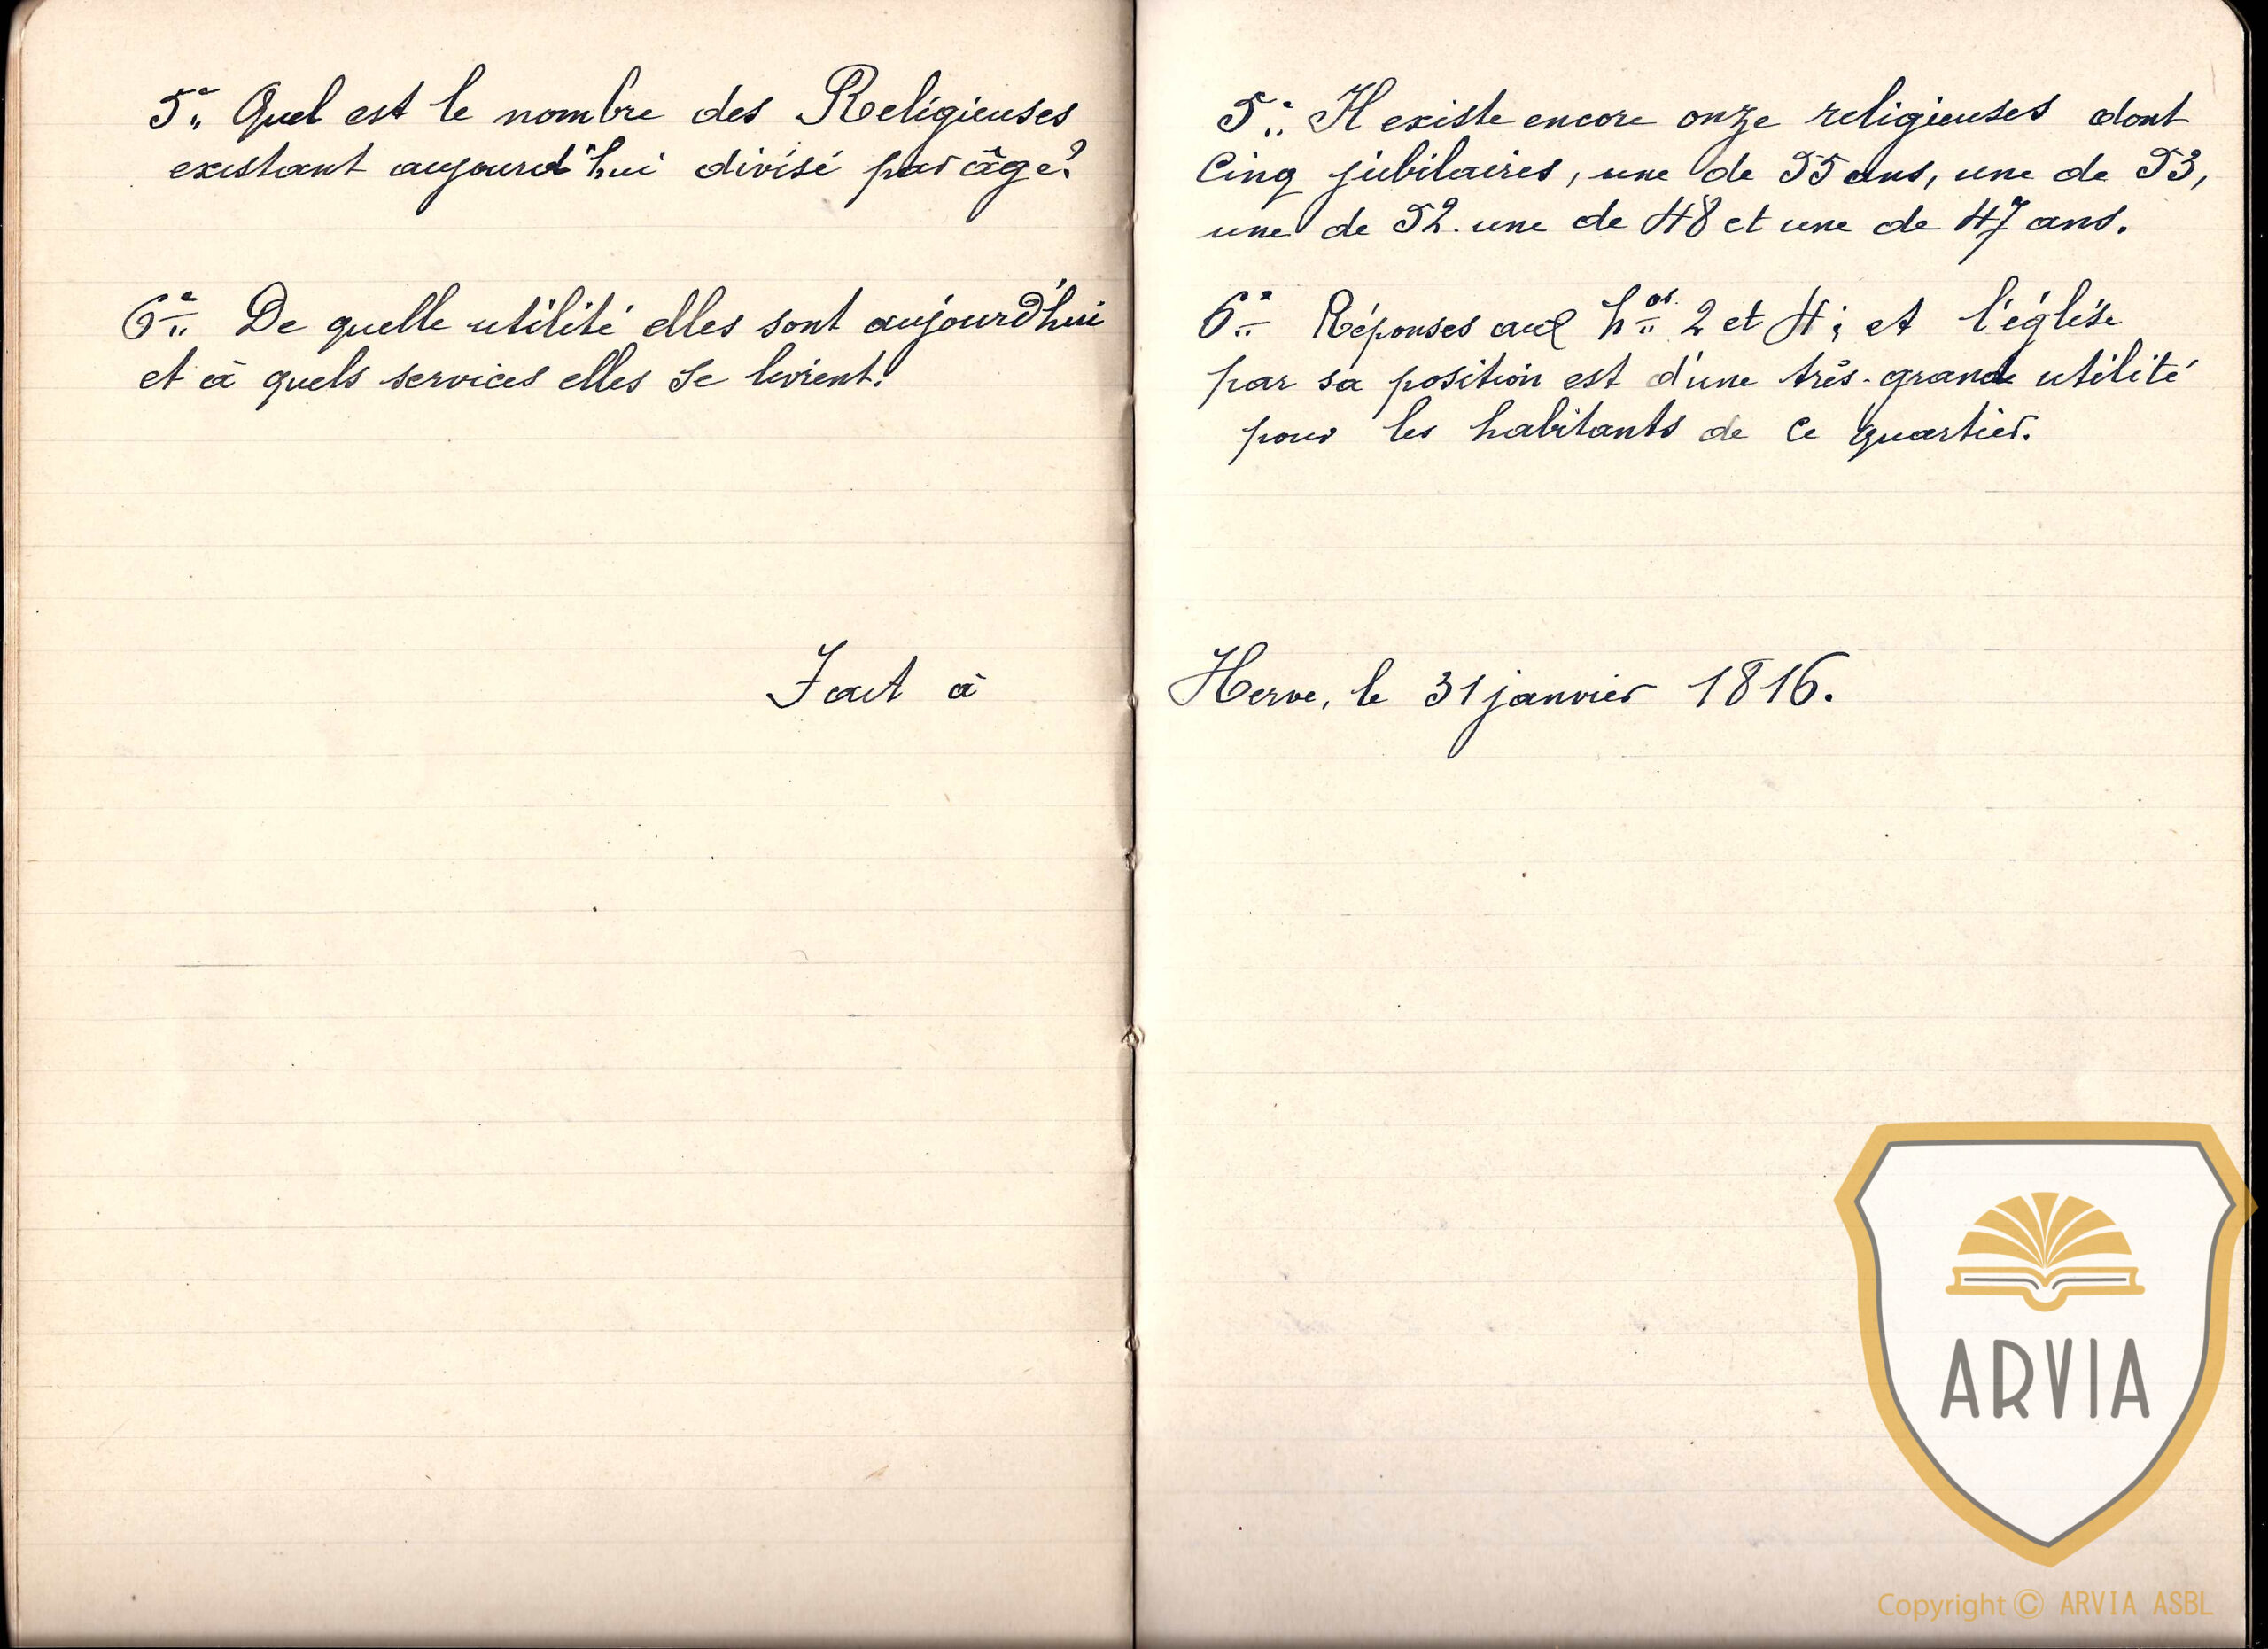 5° Quel est le nombre des Religieuses
existant aujourd'hui divisé par âge?
6° De quelle utilité elles sont aujourd'hui
et à quels services elles se livrent.
Fait à
5° Il existe encore onze religieuses dont
Cinq jubilaires, une de 55 ans, une de 53,
une de 52. une de 48 et une de 47 ans.
6° Réponses aux nos. 2 et 4; et l'église
par sa position est d'une très-grande utilité
pour les habitants de ce quartier.
Herve, le 31 janvier 1816.
ARVIA
Copyright © ARVIA ASBL